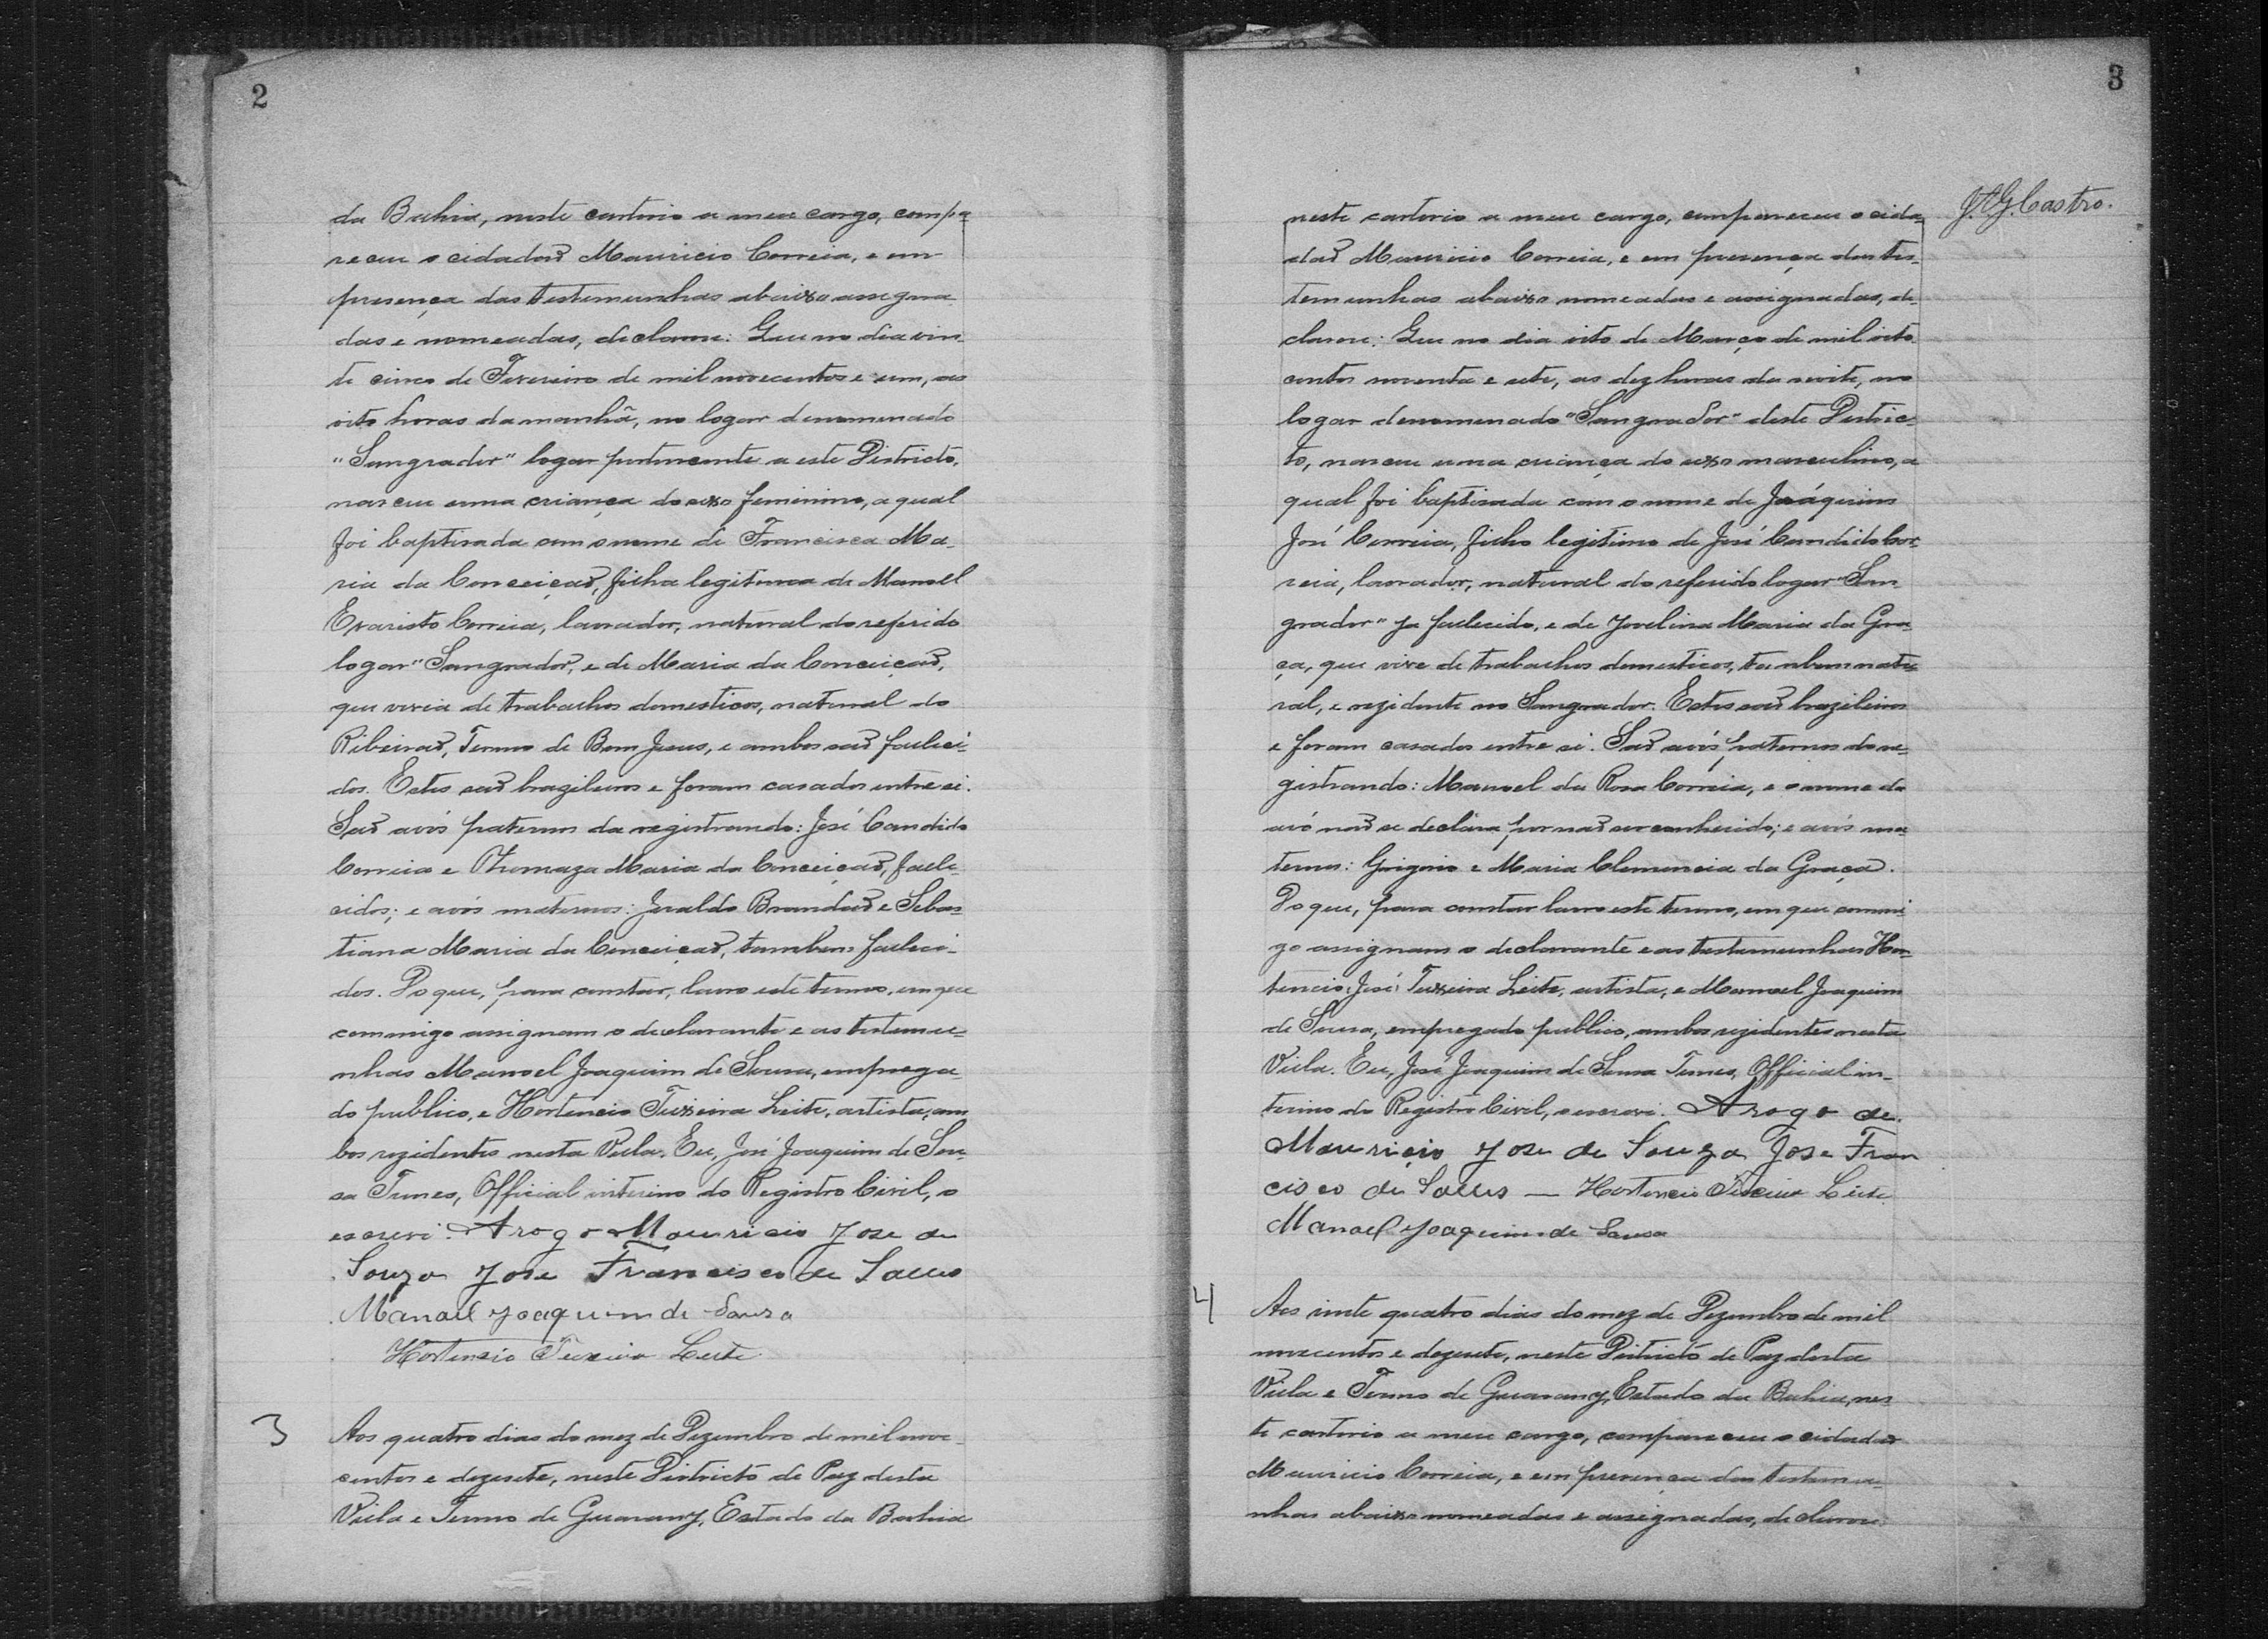 2
da Bahia, neste cartorio a meu cargo, compa
receu o cidadaõ Mauricio Correia, e em
presença das testemunhas abaixo assigna
das e nomeadas, declarou: Que no dia vin
te cinco de Fevereiro de mil novecentos e um, as
oito horas da manhã, no logar denominado
"Sangrador" logar pertencente a este Districto,
nasceu uma criança do sexo feminino, a qual
foi baptisada com o nome de Francisca Ma-
ria da Conceiçaõ, filha legitima de Manoel
Evaristo Correia, lavrador, natural do referido
logar "Sangrador", e de Maria da Conceiçaõ,
que vivia de trabalhos domesticos, natural do
Ribeiraõ, Termo de Bom Jesus, e ambos saõ faleci-
dos. Estes saõ brazileiros e foram casados entre si.
Saõ avós paternos da registrando: José Candido
Correia e Thomaza Maria da Conceiçaõ, fale-
cidos; e avós maternos: Jeraldo Brandaõ e Sebas-
tiana Maria da Conceiçaõ, tambem faleci-
dos. Do que, para constar, lavro este termo, em que
commigo assignam o declarante e as testemu-
nhas Manoel Joaquim de Sousa, emprega-
do publico, e Hortencio Teixeira Leite, artista, am
bos rezidentes nesta Villa. Eu, José Joaquim de Sou-
sa Tunes, Official interino do Registro Civil, o
escrevi. Arogo Mauricio Jose de
Souza Jose Francisco de Salles
Manoel Joaquim de Sousa
Hortencio Teixeira Leite
3
Aos quatro dias do mez de Dezembro de mil nove-
centos e dezesete, neste Districto de Paz desta
Villa e Termo de Guarany, Estado da Bahia
3
J.A.G. Castro.
neste cartorio a meu cargo, compareceu o cida-
daõ Mauricio Correia, e em presença das tes-
temunhas abaixo nomeadas e assignadas, de-
clarou: Que no dia oito de Março de mil oito
centos noventa e sete, as dez horas da noite, no
logar denomenado "Sangrador" deste Distric-
to, nasceu uma criança do sexo masculino, a
qual foi baptisada com o nome de Joáquim
José Correia, filho legitimo de José Candido Cor-
reia, lavrador, natural do referido logar "San-
grador" ja falecido, e de Jovelina Maria da Gra-
ça, que vive de trabalhos domesticos, tambem natu-
ral, e rezidente no Sangrador. Estes saõ brazileiros
e foram casados entre si. Saõ avós paternos do re-
gistrando: Manoel da Rosa Correia, e o nome da
avó naõ se declára por naõ ser conhecido; e avós ma-
ternos: Grigorio e Maria Clemencia da Graça.
Do que, para constar lavro este termo, em que commi
go assignam o declarante e as testemunhas Hor-
tencio José Teixeira Leite, artista, e Manoel Joaquim
de Sousa, empregado publico, ambos rezidentes nesta
Villa. Eu, José Joaquim de Sousa Tunes, Official in-
terino do Registro Civil, o escrevi. Arogo de
Mauriçio Jose de Souza Jose Fran
cisco de Salles — Hortencio Teixeira Leite
Manoel Joaquim de Sousa
4
Aos vinte quatro dias do mez de Dezembro de mil
novecentos e dezesete, neste Districto de Paz desta
Villa e Termo de Guarany, Estado da Bahia, nes
te cartorio a meu cargo, compareceu o cidadaõ
Mauricio Correia, e em presença das testemu-
nhas abaixo nomeadas e assignadas, declarou: